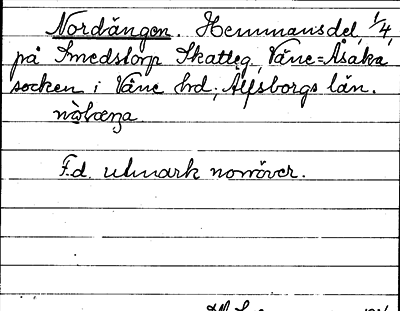 Nordängen. Hemmansdel, 1/4,
på Smedstorp Skatteg, Väne-Åsaka
socken i Väne hd; Älfsborgs län.
F.d. utmark norröver.